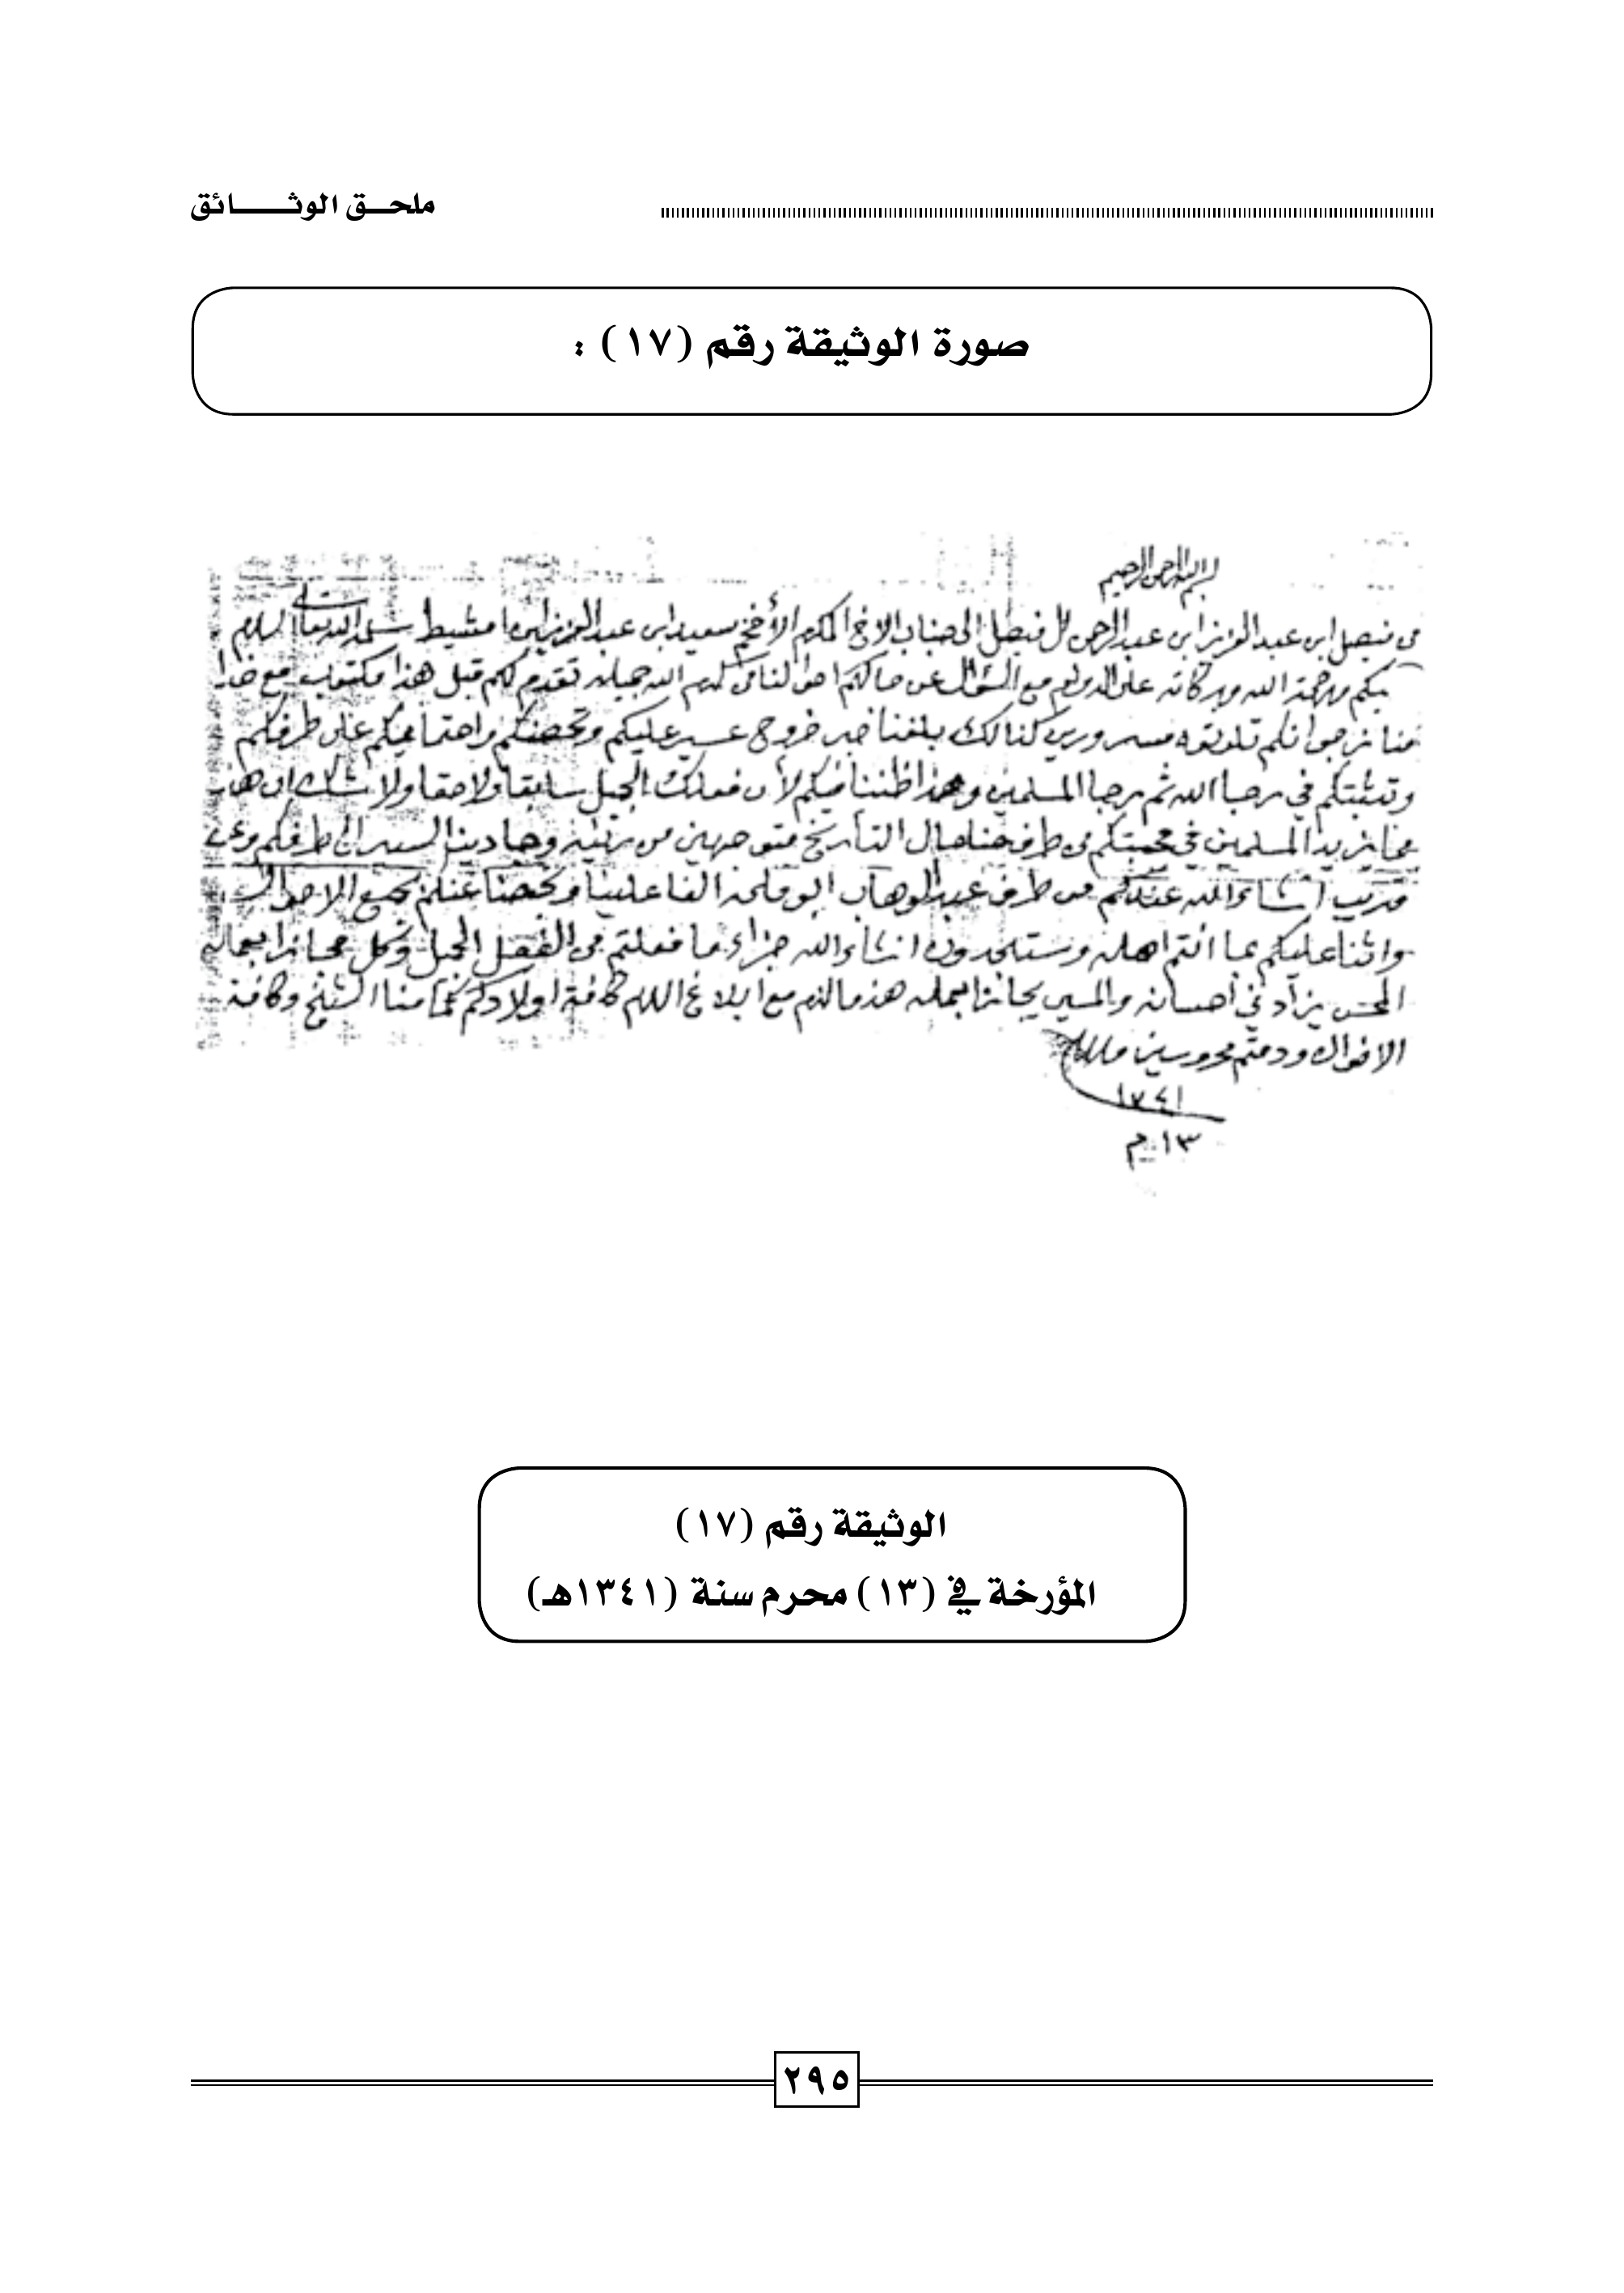 ملحـــق الوثـــــــائق
صورة الوثيقة رقم (١٧) :
بسم الله الرحمن الرحيم
من فيصل ابن عبد العزيز ابن عبد الرحمن ال فيصل الى جناب الاخ المكرم الأفخم سعيد ابن عبد العزيز ابن مشيط سلمه الله تعالى السلام
عليكم ورحمة الله وبركاته على الدوام مع السؤال عن حالكم احوالنا من كرم الله جميله تقدم لكم قبل هذا مكتوب مع
منا نرجوا انكم تلقيتوه مسرورين كذالك بلغنا خبر خروج عسير عليكم وتحصنكم واحتمائكم على طرفكم
وتثبتكم في رجا الله ثم رجا المسلمين وهذا ظننا فيكم لأن فعلك الجميل سابقا ولاحقا ولا شك ان هذا
مما يزيد المسلمين في محبتكم من طرفنا حال التأريخ متوجهين من رنيه وجادين السير الى طرفكم وعن
قريب انشاء الله عندكم من طرف عبد الوهاب ابو ملحه الفا علينا وتحصنا عنكم بجميع الاحوال
واثنا عليكم بما انتم اهله وستجدون انشاء الله جزاء ما فعلتم من الفضل الجميل وكل مجازا بعماله
المحسن يزاد في احسانه والمسي يجازا بعمله هذا ما لزم مع ابلاغ السلام كافة اولادكم كما منا الشيخ وكافة
الاخوان ودمتم محروسين والسلام
١٣٤١
١٣ م
الوثيقة رقم (١٧)
المؤرخة في (١٣) محرم سنة (١٣٤١هـ)
٢٩٥